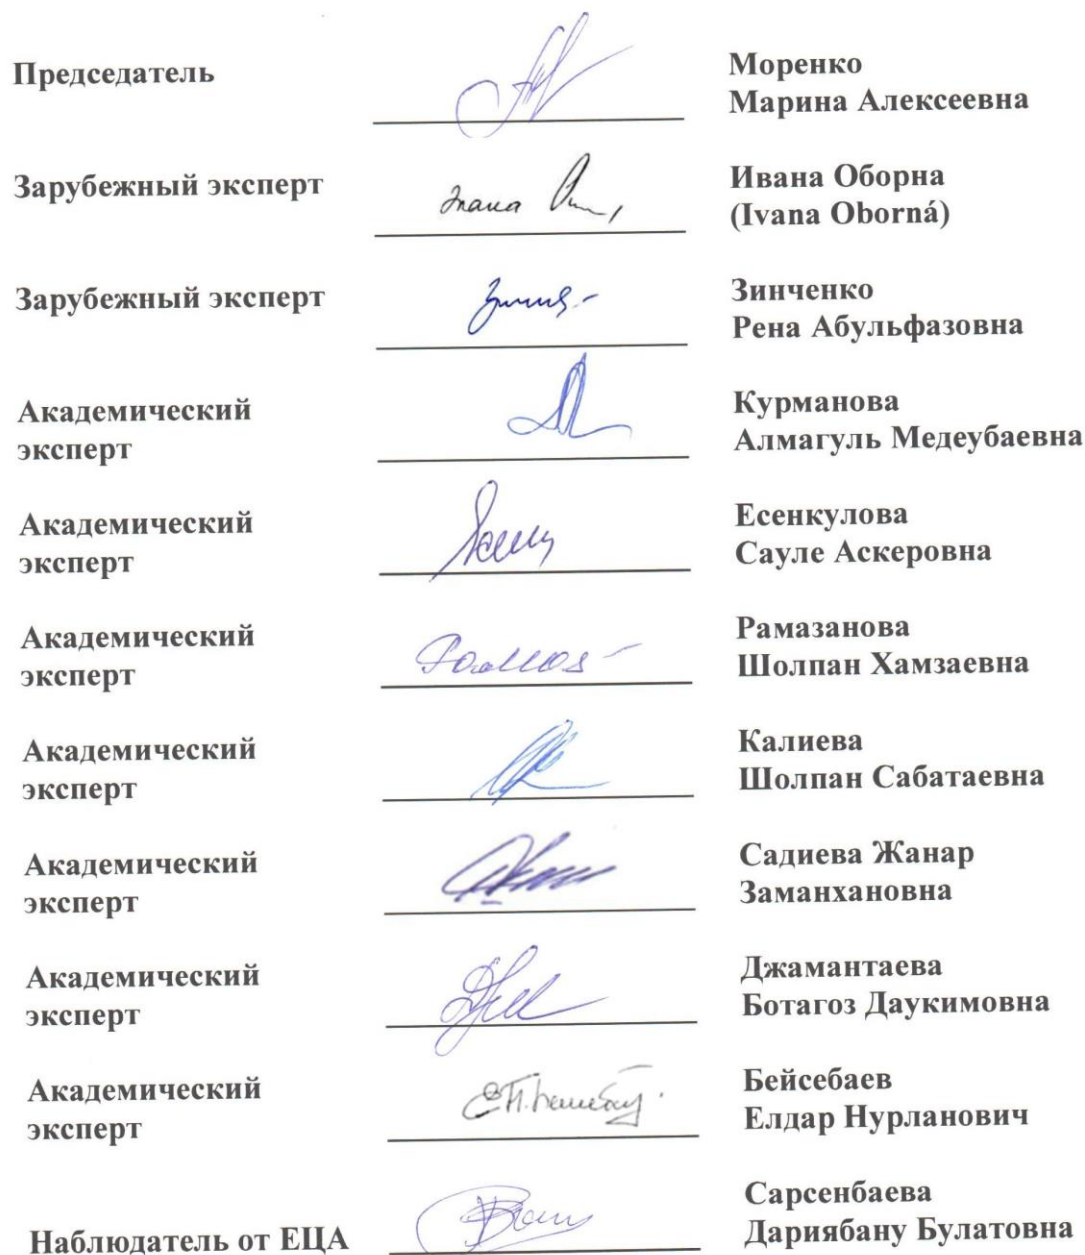 Председатель
Моренко
Марина Алексеевна
Зарубежный эксперт
Ивана Оборна
(Ivana Oborná)
Зарубежный эксперт
Зинченко
Рена Абульфазовна
Академический
эксперт
Курманова
Алмагуль Медеубаевна
Академический
эксперт
Есенкулова
Сауле Аскеровна
Академический
эксперт
Рамазанова
Шолпан Хамзаевна
Академический
эксперт
Калиева
Шолпан Сабатаевна
Академический
эксперт
Садиева Жанар
Заманхановна
Академический
эксперт
Джамантаева
Ботагоз Даукимовна
Академический
эксперт
Бейсебаев
Елдар Нурланович
Наблюдатель от ЕЦА
Сарсенбаева
Дариябану Булатовна